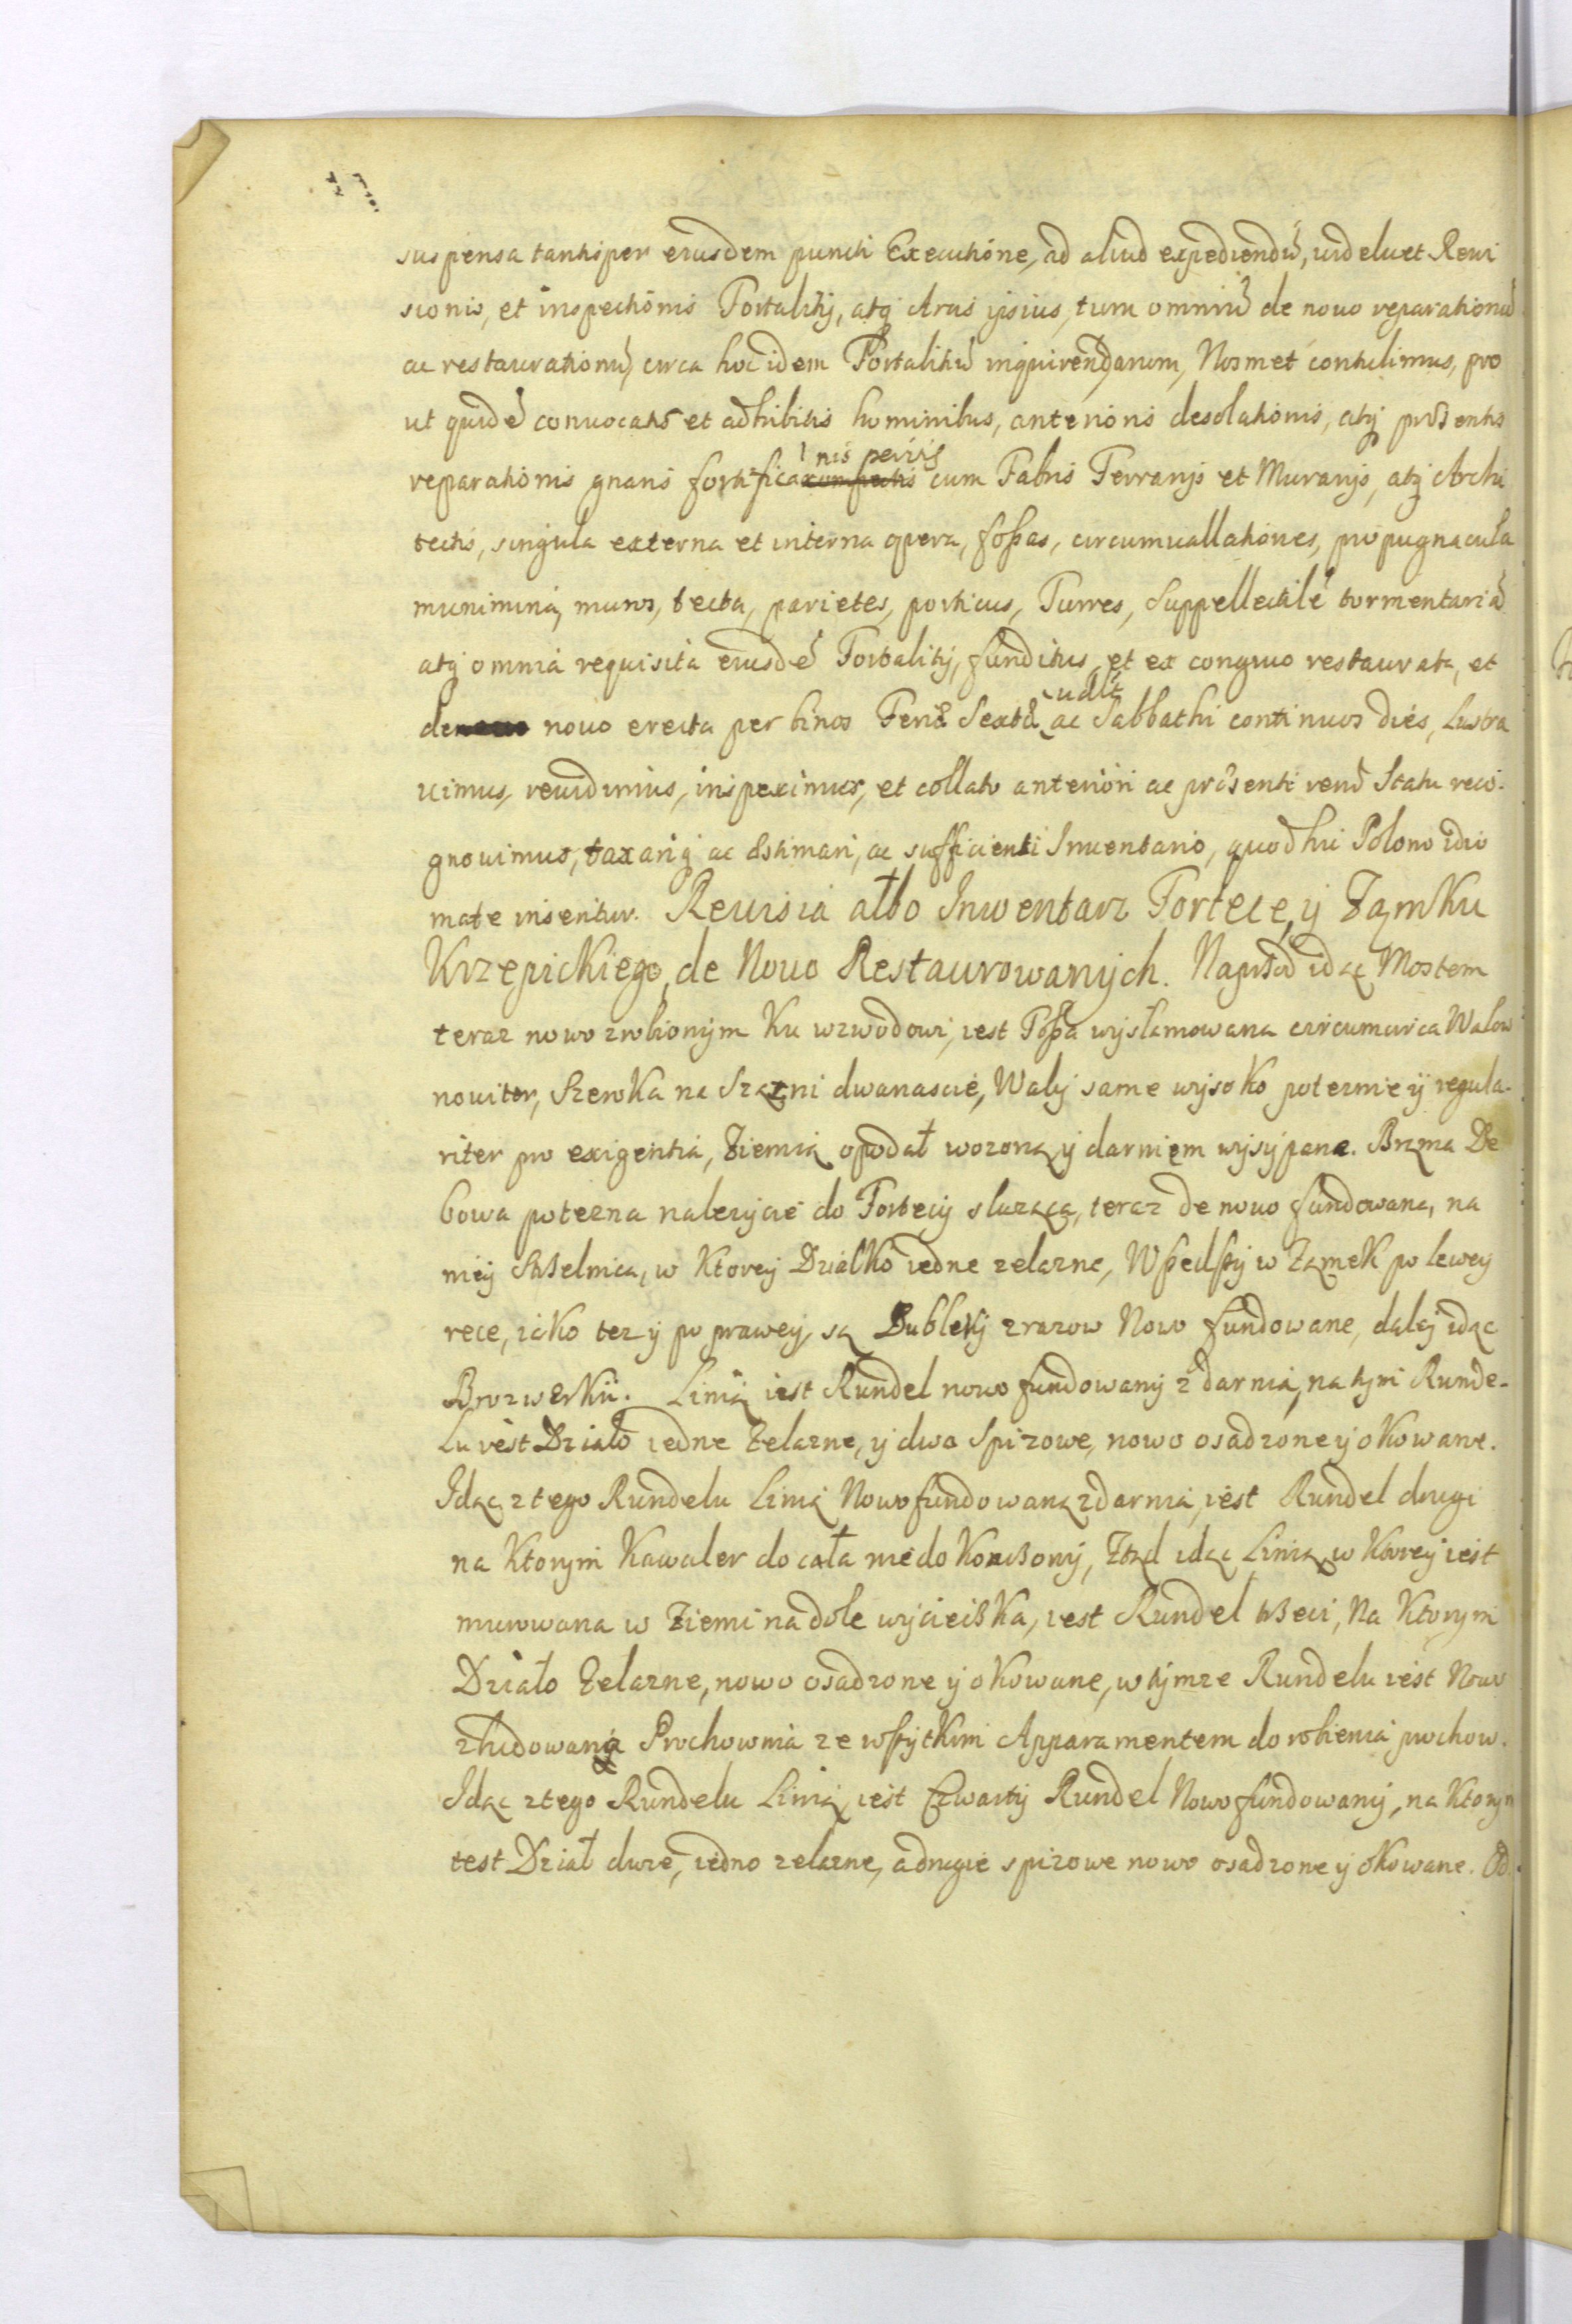 suspensa tantisper eiusdem puncti Executione, ad aliud expediendũ, videlicet Revi
sionis, et inspectionis Fortalitij, atq Arcis ipsius, tum omniũ de novo reparationũ
ac restaurationũ, circa hoc idem Fortalitiũ inquirendarum, Nosmet contulimus, pro
ut quidẽ convocatis et adhibitis hominibus, anterioris desolationis, atq prӕsentis
reparationis gnaris fortifica nis peritis cum Fabris Ferrarijs et Murarijs, atq Archi
tectis, singula externa et interna opera, foßas, circumvallationes, propugnacula
munimina, muros, tecta, parietes, porticus, Turres, Suppellectilẽ tormentariã
atq omnia requisita eiusdẽ Fortalitij, funditus, et ex congruo restaurata, et
de novo erecta per binos Feriӕ Sextӕ ac Sabbathi continuos dies, Lustra
vimus, revidimus, inspeximus, et collato anteriori ac prӕsenti rerũ Statu reco-
gnovimus, taxariq ac ӕstimari, ac sufficienti Inventario, quod hic Polono idio
mate inseritur. Revisia albo Inwentarz Fortece, y Zamku
Krzepickiego, de Novo Restaurowanych. Naprzod idąc Mostem
teraz nowo zrobionym Ku wzwodowi, iest Foßa wyszlamowana circumcirca Walow
noviter, Szeroka na Sążni dwanascie, Waly same wysoko poteznie y regula-
riter pro exigentia, Ziemią opodal wozoną y darniem wysypane. Brama De
bowa potezna nalezycie do Fortecy sluząca, teraz de novo fundowana, na
niey Strzelnica, w Ktorey Dzialko iedne zelazne, Wßedßy w Zamek po lewey
rece, iako tez y po prawey, są Dubleky zrazow Nowo fundowane, daley idąc
Linią iest Rundel nowo fundowany z darnia, na tym Runde-
lu iest Dzialo iedne Zelazne, y dwa Spizowe, nowo osadzone y okowane.
Idąc z tego Rundelu Linią Nowo fundowaną z darnia, iest Rundel drugi
na Ktorym Kawaler do cala nie dokonczony, Ztąd idąc Linią, w Ktorey iest
murowana w Ziemi na dole wycieczka, iest Rundel trzeci, Na Ktorym
Dzialo Zelazne, nowo osadzone y okowane, w tymze Rundelu iest Nowo
zbudowana Prochownia ze wßytkim Apparamentem do robienia prochow.
Idąc z tego Rundelu Linią, iest Czwarty Rundel Nowo fundowany, na Ktorym
iest Dzial dwie, iedno zelazne, a drugie spizowe nowo osadzone y okowane. Od